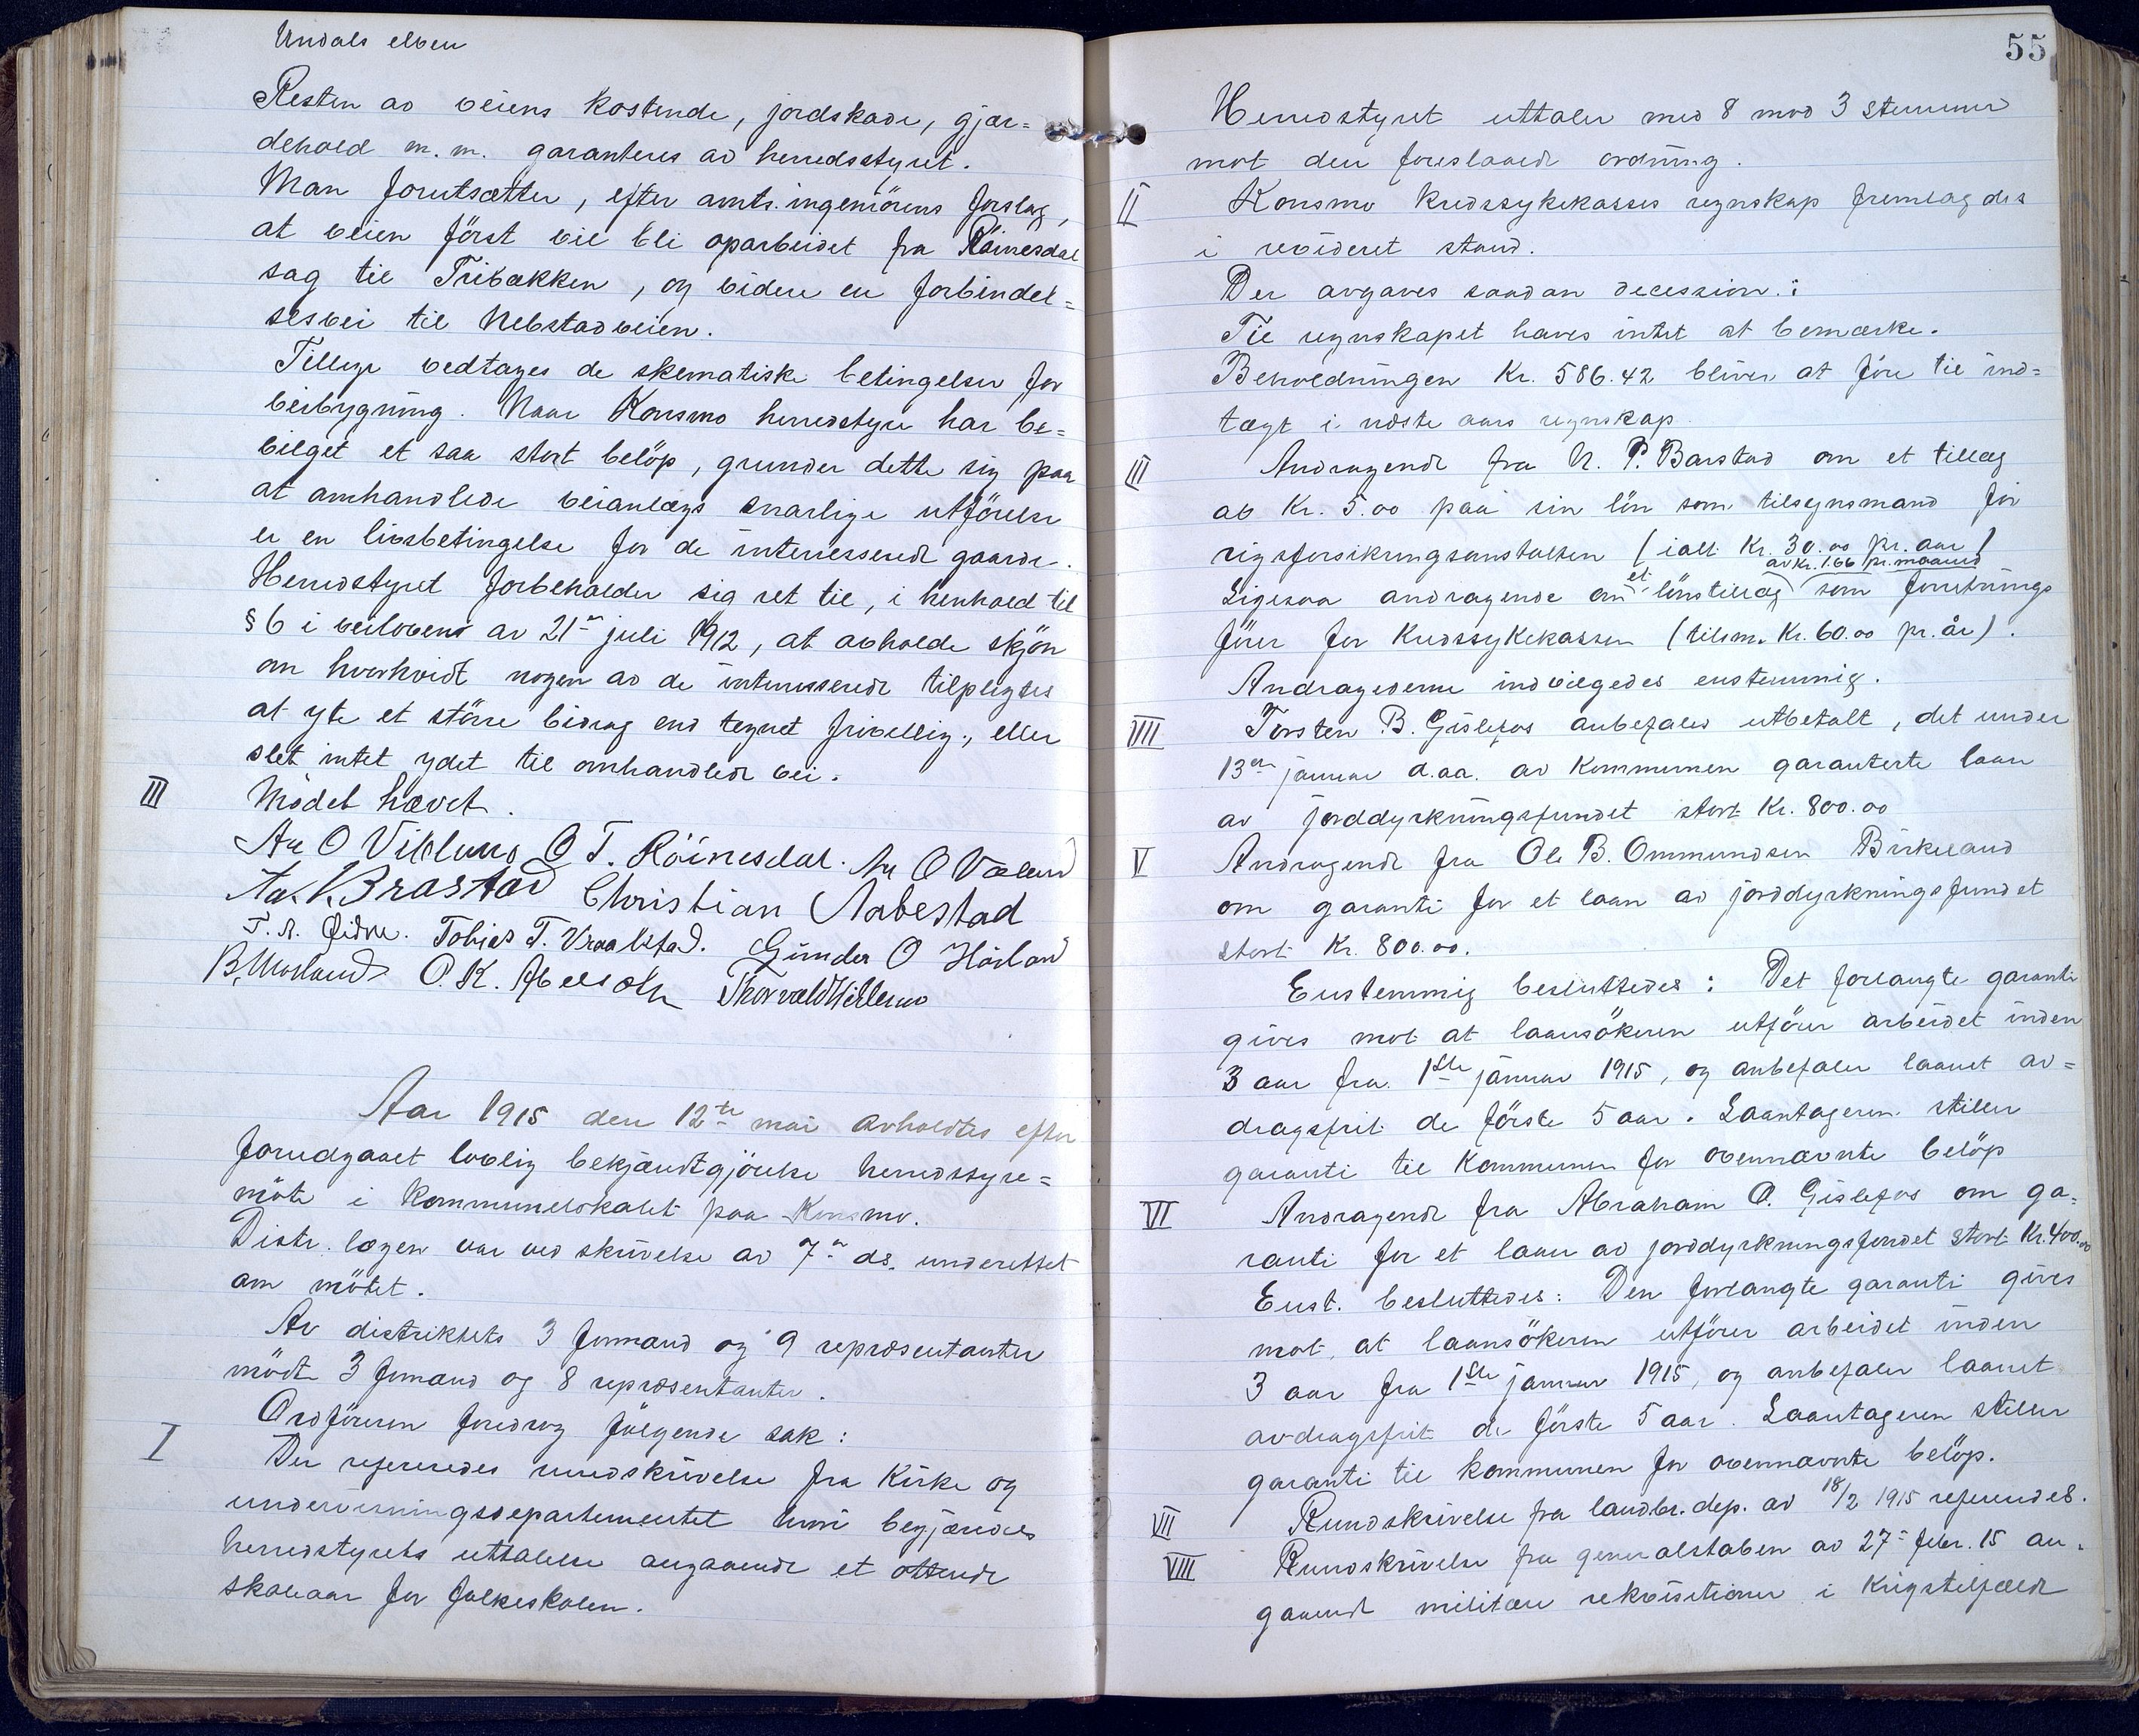 Undals elven
Resten av veiens kostende, jordskade, gjær=
dehold m. m. garanteres av herredsstyret.
Man forutsætter, efter amts.ingeniörens forslag,
at veien först vil bli oparbeidet fra Röinesdal
sag til Tribækken, og videre en forbindel=
sesvei til Nebstadveien.
Tillige vedtages de skematiske betingelser for
veibygning. Naar Konsmo herredstyre har be=
vilget et saa stort belöp, grunder dette sig paa
at omhandlede veianlægs snarlige utförelse
er en livsbetingelse for de interesserede gaarde.
Herredstyret forbeholder sig ret til, i henhold til
§ 6 i veiloven av 21de juli 1912, at avholde skjön
om hvorvidt nogen av de interesserede tilpligtes
at yte et större bidrag end tegnet frivillig, eller
slet intet ydet til omhandlede vei.
III Mödet hævet.
An O Viblemo O T. Röinesdal. An O Væland
Aa. K. Brastad Christian Aabestad
T. A. Eidse. Tobias T. Vraalstad. Gunder O Hörland
B. Morland O. K. Abelsoln Thorvald Viblemo
Aar 1915 den 12te mai avholdtes efter
forudgaaet lovlig bekjendtgjörelse herredsstyre=
möte i kommunelokalet paa Konsmo.
Distr. lægen var ved skrivelse av 7de ds. underettet
om mötet.
Av distriktets 3 formænd og 9 repræsentanter
mödte 3 formænd og 8 repræsentanter.
Ordföreren foredrog fölgende sak:
I Der refereredes rundskrivelse fra Kirke og
undervisningsdepartementet hvori begjæredes
herredstyrets uttalelse angaaende et ottende
skoleaar for folkeskolen.
55
Herredstyret uttaler med 8 mod 3 stemmer
mot den foreslaaede ordning.
II Konsmo kredssykekasses regnskap fremlagdes
i revideret stand.
Der avgaves saadan decession.:
Til regnskapet haves intet at bemærke.
Beholdningen Kr. 586.42 bliver at före til ind=
tægt i næste aars regnskap.
III Andragende fra N. P. Barstad om et tillæg
av Kr. 5.00 paa sin lön som tilsynsmand for
rigsforsikringsanstalten (ialt Kr. 30.00 pr. aar)
av Kr. 1.66 pr. maaned
Ligesaa andragende om et lönstillæg som forretnings
förer for Kredssykekassen (tilsm. Kr. 60.00 pr. år).
Andragederne indvilgedes enstemmig.
VIII Torsten B. Gislefos anbefales utbetalt, det under
13de januar d.aa. av Kommunen garanterte laan
av jorddyrkningsfundet stort Kr. 800.00
V Andragende fra Ole B. Ommundsen Birkeland
om garanti for et laan av jorddyrkningsfundet
stort Kr. 800.00.
Enstemmig besluttedes: Det forlangte garanti
gives mot at laansökeren utförer arbeidet inden
3 aar fra 1ste januar 1915, og anbefaler laanet av=
dragsfrit de förste 5 aar. Laantageren stiller
garanti til Kommunen for ovennævnte belöp
VI Andragende fra Abraham O. Gislefos om ga=
ranti for et laan av jorddyrkningsfondet stort Kr. 400.00
Enst. besluttedes: Den forlangte garanti gives
mot, at laansökeren utförer arbeidet inden
3 aar fra 1ste januar 1915, og anbefaler laanet
avdragsfrit de förste 5 aar. Laantageren stiller
garanti til kommunen for ovennævnte belöp.
VII Rundskrivelse fra landbr. dep. av 18/2 1915 refereredes.
VIII Rundskrivelse fra generalstaben av 27de febr. 15 an=
gaaende militære rekvisitioner i Krigstilfælde